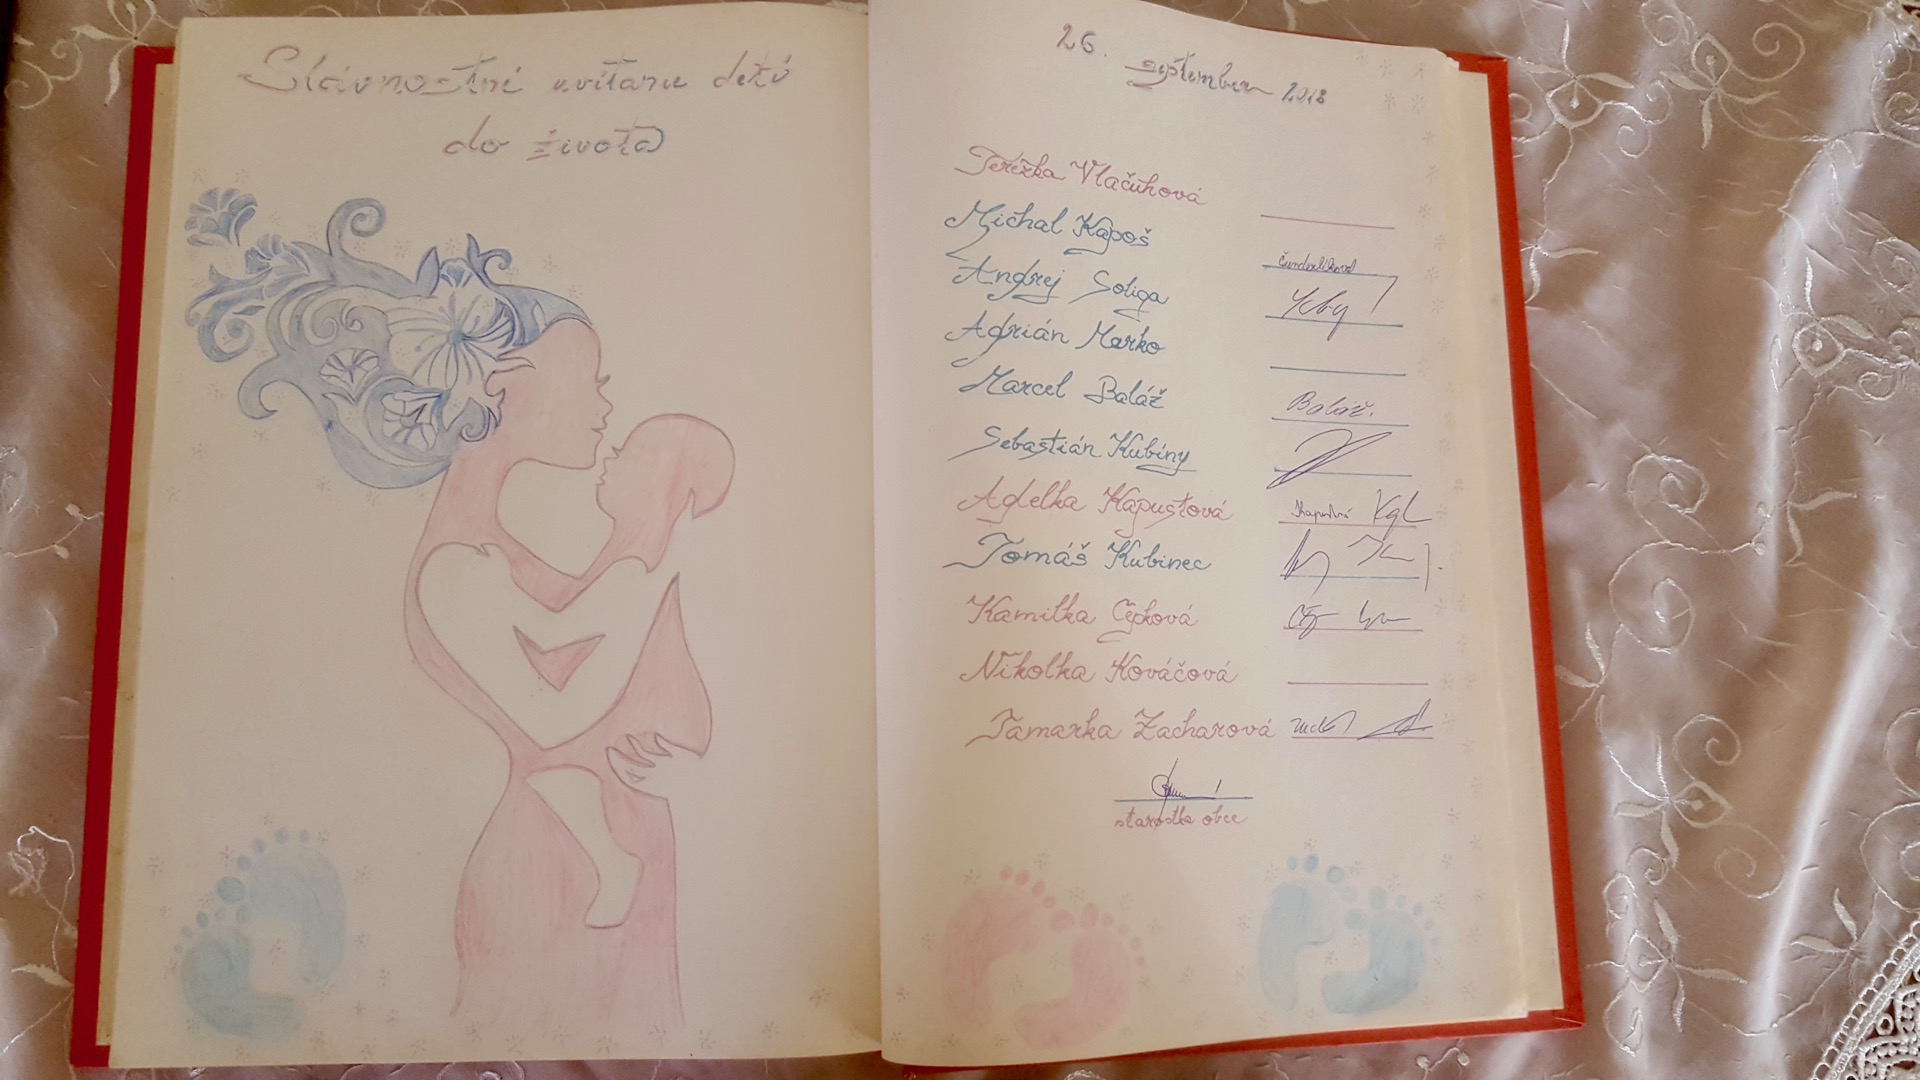 Slávnostné uvítanie detí
do života
26. september 2018
Terézka Vlačuhová
Michal Kapoš
Andrej Soliga
Adrián Marko
Marcel Baláž
Baláž.
Sebastián Kubíny
Adelka Kapustová
Tomáš Kubinec
Kamilka Čepková
Nikolka Kováčová
Tamarka Zacharová
starostka obce